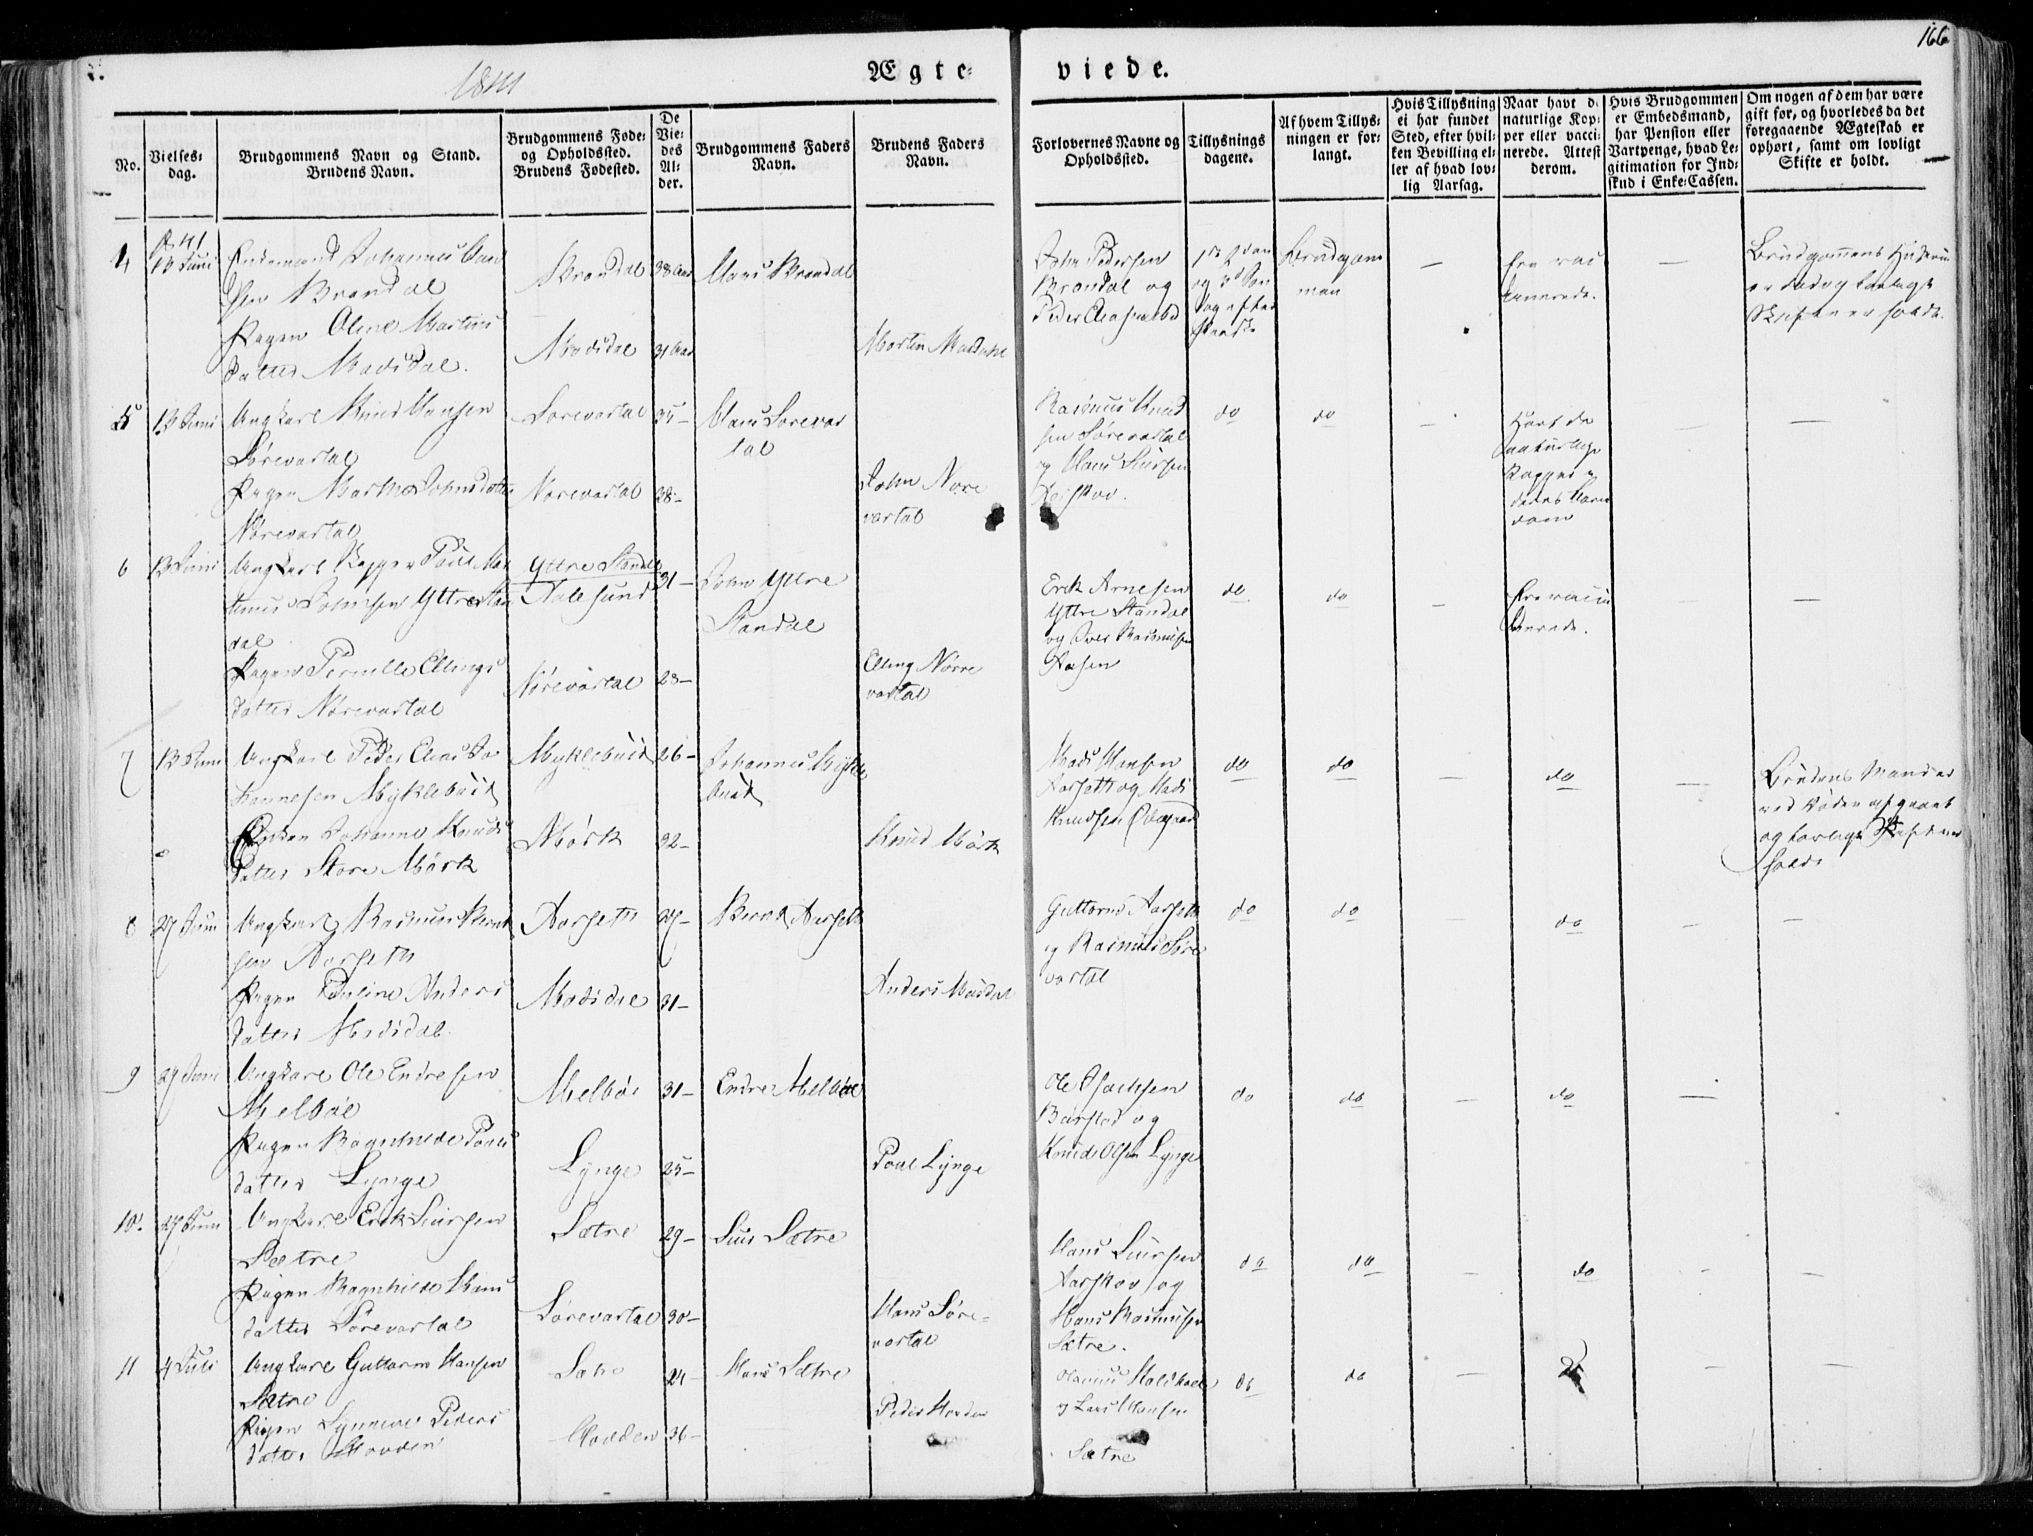 166
1841
Ægte-viede.
No.
Vielses-
dag.
Brudgommens Navn og Stand.
Brudens Navn.
Brudgommens Føde-
og Opholdssted.
Brudens Fødested.
De
Vie-
des
Al-
der.
Brudgommens Faders
Navn.
Brudens Faders
Navn.
Forlovernes Navne og
Opholdssted.
Tillysnings
dagene.
Af hvem Tillys-
ningen er for-
langt.
Hvis Tillysning
ei har fundet
Sted, efter hvil-
ken Bevilling el-
ler af hvad lov-
lig Aarsag.
Naar havt de
naturlige Kop-
per eller vacci-
nerede. Attest
derom.
Hvis Brudgommen
er Embedsmand,
har Pension eller
Vartpenge, hvad Le-
gitimation for Ind-
skud i Enke-Cassen.
Om nogen af dem har være
gift før, og hvorledes da det
foregaaende Ægteskab er
ophørt, samt om lovligt
Skifte er holdt.
4
1841
13 Juni
Enkemand Johannes Han
sen Brandal
Brandal
38 Aar
Hans Brandal
John Pedersen
Brandal og
Brudgom
men
—
Ere vac
cinerede.
—
Brudgommens Hustru
er død og lovligt
Skifte er holdt.
Pigen Oline Martins
datter Madsdal.
Madsdal
31 Aar
Morten Masdahl
5
13 Juni
Ungkarl Knud Hansen
Sørevartal
Sørevartal
35 —
Hans Sørevar
tal
Rasmus Knud
sen Sørevartal
og Hans Siursen
do
do
—
Havt de
naturlige
Kopper i
deres Barn
dom
—
—
Pigen Marthe Johnsdatter
Nørevartal
Norevartal
38 —
John Nore
vartal
6
13 Juni
Ungkarl Poul Mar
tinus Johnsen Yttre Stan
dal
Yttre Standal
Aalesund
31 —
John Yttre
Standal
Erik Arnesen
Yttre Standal
og Iver Rasmusen
Aasen
do
do
—
Ere vacci
nerede.
—
—
Pigen Pernille Ellings
datter Nørevartal
Nørevartal
28 —
Elling Nørre
vartal
7
13 Juni
Ungkarl Peder Elias Jo
hannesen Myklebust
Myklebust
26 —
Johannes Mykle
bust
Mads Hansen
Aarseth og Mads
Knudsen Ødegaard
do
do
—
do
—
Brudens Mand er
ved Døden afgaaet
og lovligt Skifte er
holdt
Enken Johanne Knuds
datter Store Mørk
Mørk
32 —
Knud Mørk
8
27 Juni
Ungkarl Rasmus Bernt
sen Aarseth
Aarseth
27 —
Bernt Aarseth
Guttorm Aarseth
og Rasmus Søre
vartal
do
do
—
do
—
—
Pigen Pauline Anders
datter Madsdal.
Madsdal
31 —
Anders Masdal
9
27 Juni
Ungkarl Ole Endresen
Melbøe
Melbøe
31 —
Endre Melbøe
Ole Isachsen
Baarstad og
Knud Olsen Lynge
do
do
—
do
—
Pigen Ragnhilde Pouls
datter Lynge
Lynge
25 —
Poul Lynge
10.
27 Juni
Ungkarl Erik Siursen
Sætre
Sætre
29 —
Siur Sætre
Hans Siursen
Aarskov og
Hans Rasmusen
Sætre.
do
do
—
do
—
—
Pigen Ragnhilde Hans
datter Sørevartal
Sørevartal
30 —
Hans Søre-
vartal
11
4 Juli
Ungkarl Guttorm Hansen
Sætre
Sætre
24 —
Hans Sætre
og Lars Hansen
Sætre
do
do
—
do
—
—
Pigen Synneve Peders
datter Hovden
Hovden
36 —
Peder Hovden